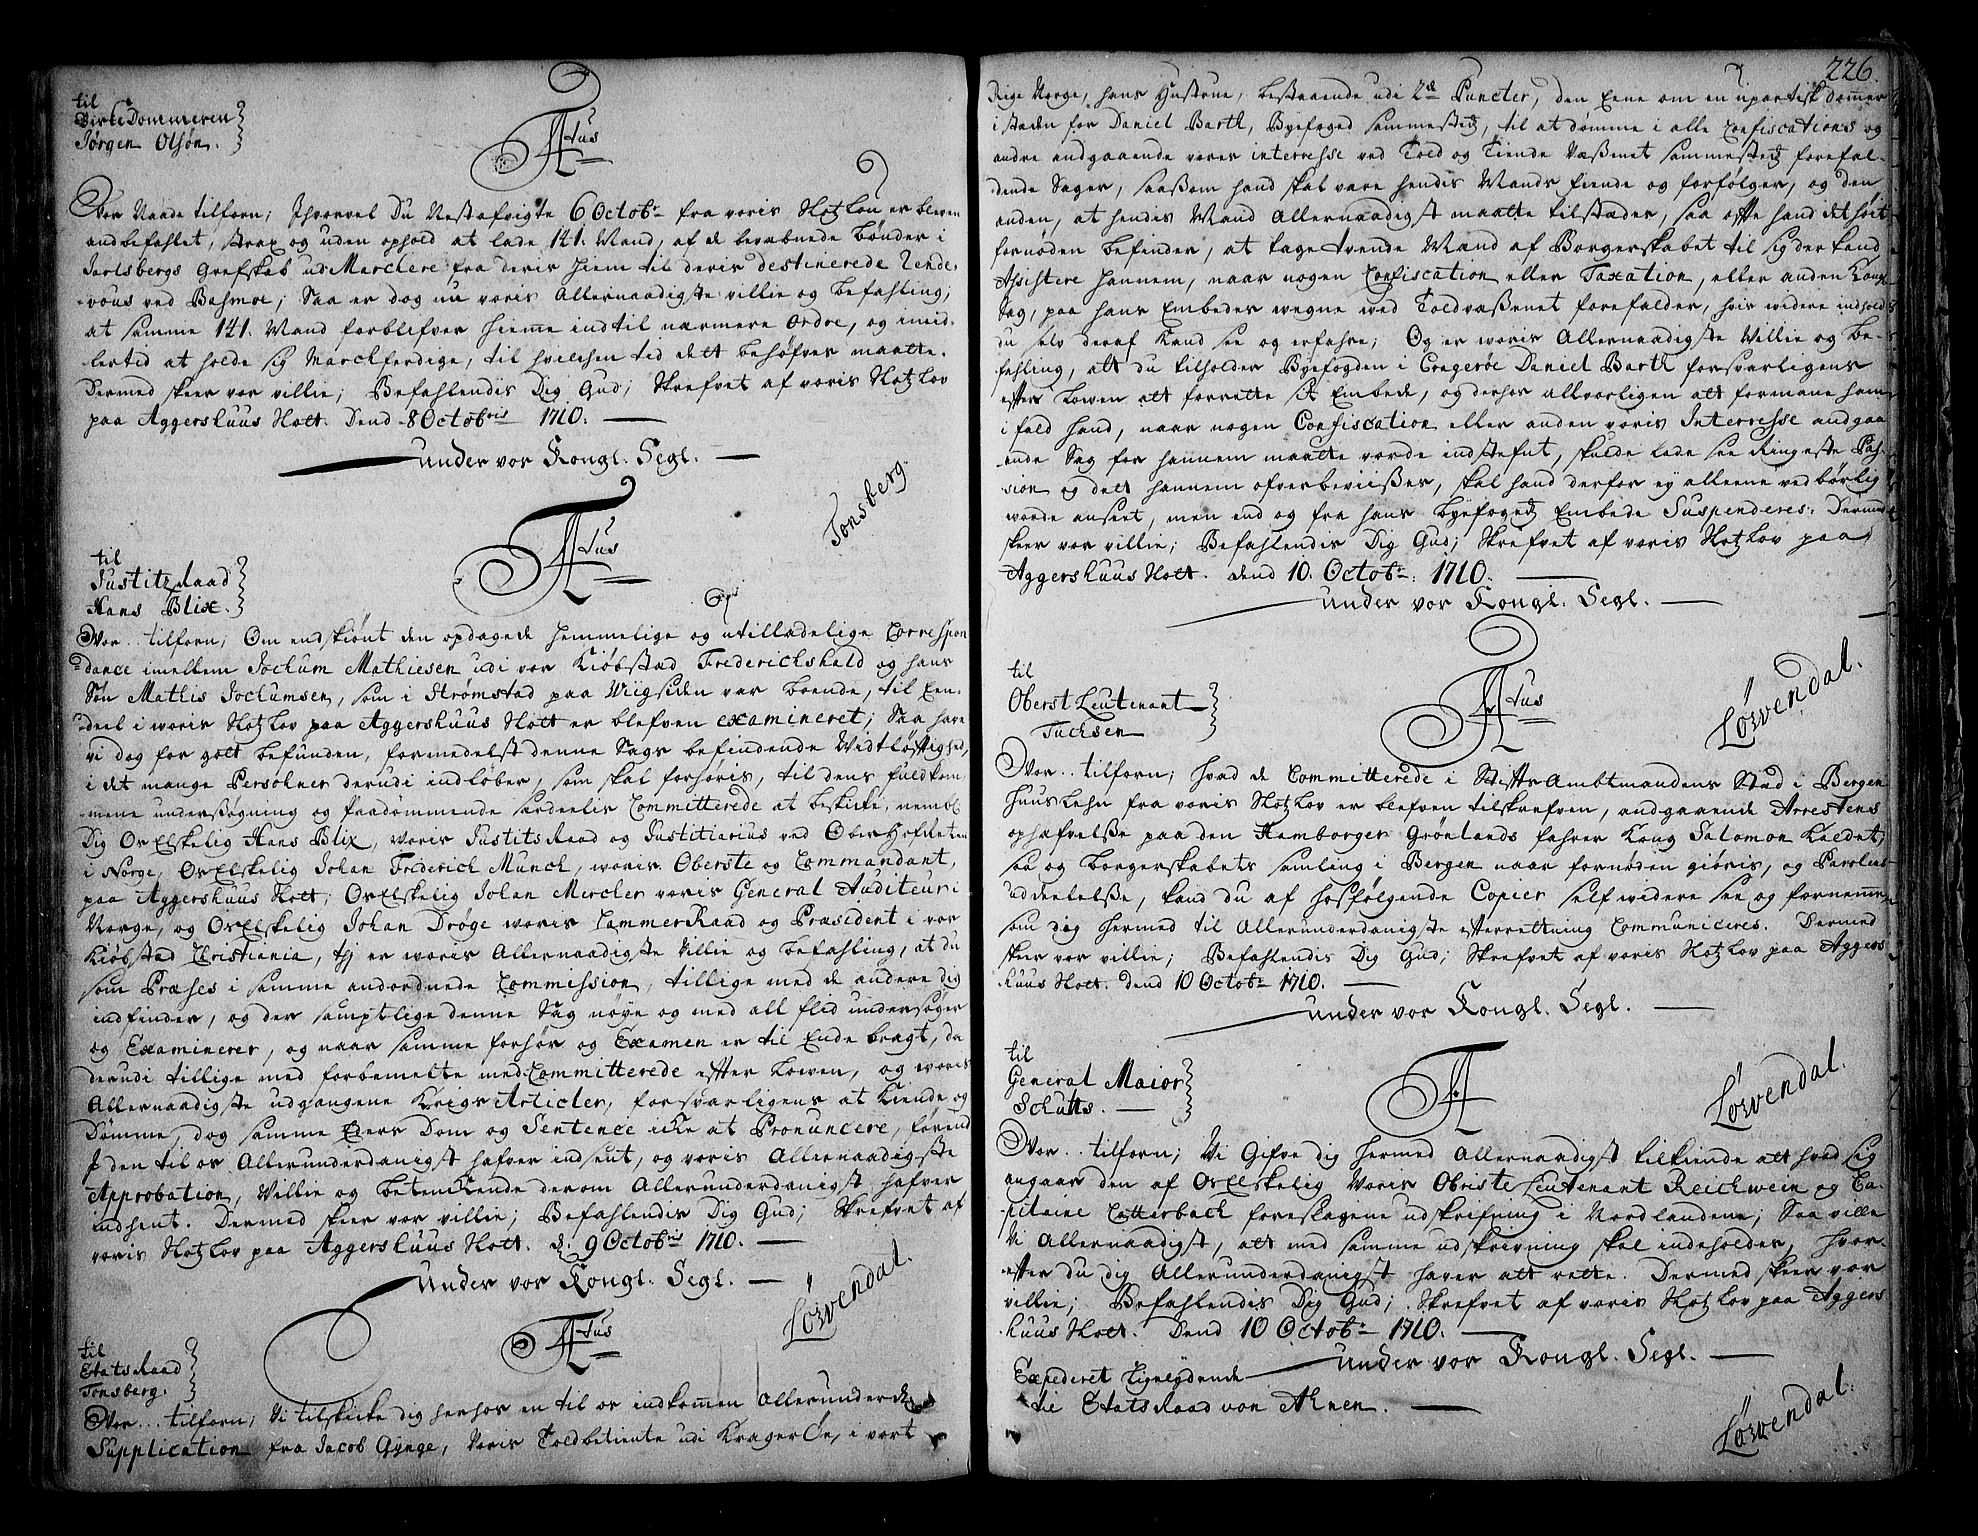 til
Birke Dommeren
Jørgen Olsøn.
Atus
Vor Naade tilforn; Ihvorvel Du Nestafvigte 6 Octobr: fra voris Slotzlov er bleven
andbefahlet, strax og uden ophold at lade 141. Mand, af de bevæbnede bønder i
Jarlsbergs Grefskab ud Marchere fra deris hiem til deris destinerede Rende-
vous ved Basmoe; Saa er dog nu voris Allernaadigste villie og befahling,
at samme 141. Mand forblifver hieme indtil nærmere Ordre, og imid-
lertid at holde sig Marchferdige, til hvilchen tid dett behøfves maatte.
Dermed skeer vor villie; Befahlendis Dig Gud; Skrefvet af voris Slotzlov
paa Aggershuus Slott. Dend 8 Octobris 1710.
under vor Kongl. Segl.
Tonsberg.
Atus
til
Justitz Raad
Hans Blix.
Vor.. tilforn; Om end skiønt den opdagede hemmelige og utilladelige Correspon
dance imellem Jochum Mathiesen udi vor Kiøbstad Frederichshald og hans
Søn Mathis Jochumsen, som i Strømstad paa Viigsiden var boende, til Een-
deel i voris Slotzlov paa Aggershuus Slott er blefven examineret; Saa have
vi dog for gott befunden, formedelst denne Sags befindende Vidtløftighed,
i det mange Persohner derudi indløber, som skal forhøris, til dens fuldkom-
mene undersøgning og paadømmende særdeelis Committerede at beskicke, nembl:
Dig Os Elskelig Hans Blix, voris Justits Raad og Justitiarius ved Ober Hof Retten
i Norge, Os Elskelig Johan Frederich Munch, voris Oberste og Commandant,
paa Aggershuus Slott; Os Elskelig Johan Mercher voris General Auditeur i
Norge, og Os Elskelig Johan Drøge voris Cammer Raad og Præsident i vor
Kiøbstad Christiania, thj er voris Allernaadigste Villie og befahling, at du
som Præses i samme andordnede Commission, tillige med de andere dig
indfinder, og der samptlige denne Sag nøye og med all flid undersøger
og Examinerer, og naar samme forhør og Examen er til Ende bragt, da
derudi tillige med forbemelte med Committerede efter Lowen, og voris
Allernaadigste udgangene Krigs Articler, forsvarligens at Kiende og
Dømme, dog samme Eders Dom og Sentence icke at Pronuncere, førend
I den til os Allerunderdanigst hafver indsent, og voris Allernaadigste
Approbation, Villie og betenckende derom Allerunderdanigst hafver
indhent. Dermed skeer vor villie; Befahlendis Dig Gud; Skrefvet af
voris Slotzlov paa Aggershuus Slott. d: 9 Octobris 1710.
Under vor Kongl. Segl.
Løvendal.
Atus
til
Etats Raad
Tonsberg.
Vor.. tilforn; Vi tilskicke dig herhos en til os indkommen Allerunderd:
Supplication fra Jacob Gynge, Voris Toldbetiente udi Krager Øe, i vort
226.
Rige Norge, hans Hustrue, bestaaende udi 2de Puncter, den Eene om en upartisk dommer
i staden for Daniel Barth, Byefoged sammestedz, til at dømme i alle Confiscations og
andre andgaaende vores interresse ved Told og Tiende Væsenet sammestedz forefal-
dende Sager, saasom hand skal vare hendis Mands fiende og forfølger, og den
anden, at hendis Mand Allernaadigst maatte tilstædes, saa ofte hand det høit
fornøden befinder, at tage tvende Mænd af Borgerskabet til sig der kand
Assistere hannem, naar nogen Confiscation eller Taxation, eller anden Kongl:
Sag, paa hans Embedes wegne wed Toldvæsenet forefalder, hvis widere indhold
du selv deraf kand see og erfahre; Og er woris Allernaadigste Villie og be-
fahling, att du tilholder Byefogden i Cragerøe Daniel Barth forsvarligens
efter Lowen att forrette sit Embede, og derhos allvorligen att formane ham,
ifald hand, naar nogen Confiscation eller anden voris Interresse andgaa-
ende Sag for hannem maatte vorde indstefnt, skulde lade see Ringeste Pas-
sion og dett hannem ofverbeviises, skal hand derfor ey alleene ved børlig
worde anseet, men end og fra hans byefogedz Embede Suspenderes. Dermed
skeer vor villie; Befahlendis Dig Gud; Skrefvet af voris Slotzlov paa
Aggershuus Slott. dend 10. Octobr: 1710.
under vor Kongl. Segl.
Løvendal.
til
Oberst Leutenant
Tuchsen
Atus
Vor.. tilforn; hvad de Committerede i Stifts Ambtmandens Stad i Bergen
huus Lehn fra voris Slotzlov er blefven tilskrefven, andgaaende Arrestens
ophæfvelse paa den Hamborger Grønlands fahrer Kong Salomon kaldet,
saa og borgerskabets samling i Bergen naar fornøden giøris, og Parolens
uddeelelse, kand du af hosfølgende Copier self widere see og fornemme,
som dig hermed til Allerunderdanigste efterretning Communiceres. Dermed
skeer vor villie; Befahlendis Dig Gud; Skrefvet af voris Slotzlov paa Aggers
huus Slott. Dend 10 Octobr: 1710.
under vor Kongl. Segl.
Løvendal.
til
General Maior
Schults.
A
Vor.. tilforn; Vi Gifve dig hermed Allernaadigst tilkiende att hvad sig
angaar den af Os Elskelig Voris Obriste Leutenant Reichwein og Ca-
pitaine Catterbach foreslagene udskrifning i Nordlandene; Saa ville
Vi Allernaadigst, att med samme udskrivning skal indeholdes, hvor-
efter du dig Allerunderdanigst haver att rette. Dermed skeer vor
villie; Befahlendis Dig Gud; Skrefvet af voris Slotzlov paa Aggers
huus Slott. Dend 10 Octobr: 1710.
under vor Kongl. Segl.
Expederet Ligelydende
til Etats Raad von Ahnen.
Løvendal.